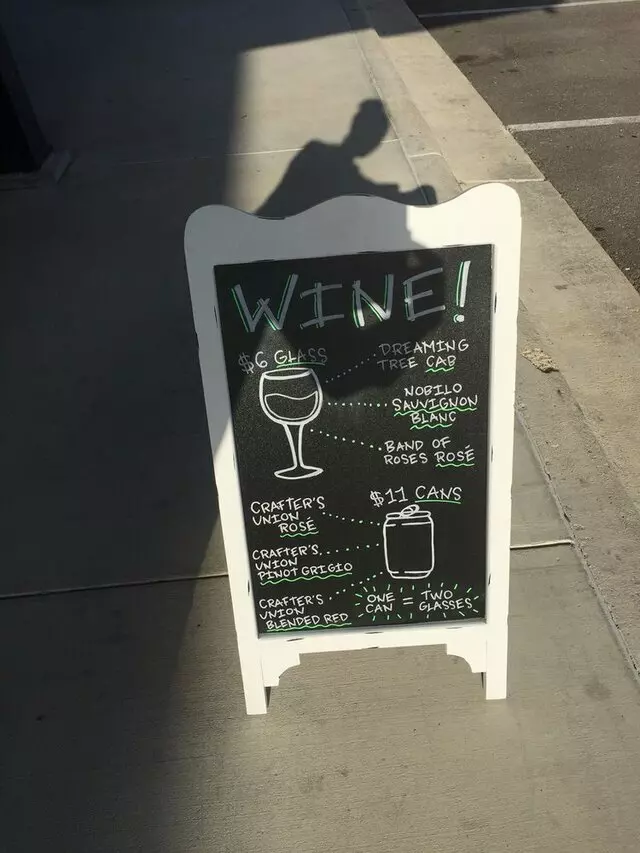 WINE!
$6 GLASS
DREAMING
TREE CAB
NOBILO
SAUVIGNON
BLANC
BAND OF
ROSES ROSÉ
$11 CANS
CRAFTER'S
UNION
ROSÉ
CRAFTER'S
UNION
PINOT GRIGIO
CRAFTER'S
UNION
BLENDED RED
ONE
CAN
=
TWO
GLASSES